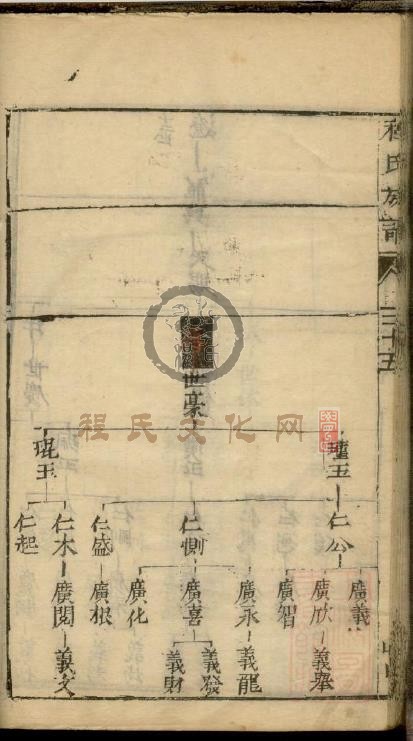 程氏族譜
三十五
世豪
瑾玉
琨玉
仁公
仁惻
仁盛
仁木
仁起
廣義
廣欣
廣智
廣永
廣喜
廣化
廣根
廣閱
義舉
義龍
義發
義財
義文
程氏文化网